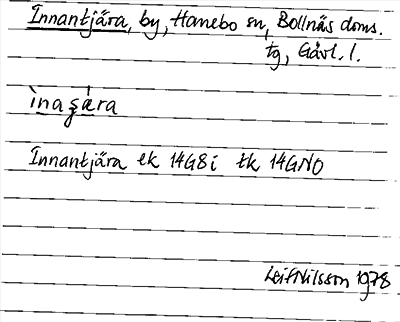 Innantjära, by, Hanebo sn, Bollnäs doms.
tg, Gävl. l.
ìnaʂæ̀ra
Innantjära ek 14G8i tk 14GNO
Leif Nilsson 1978